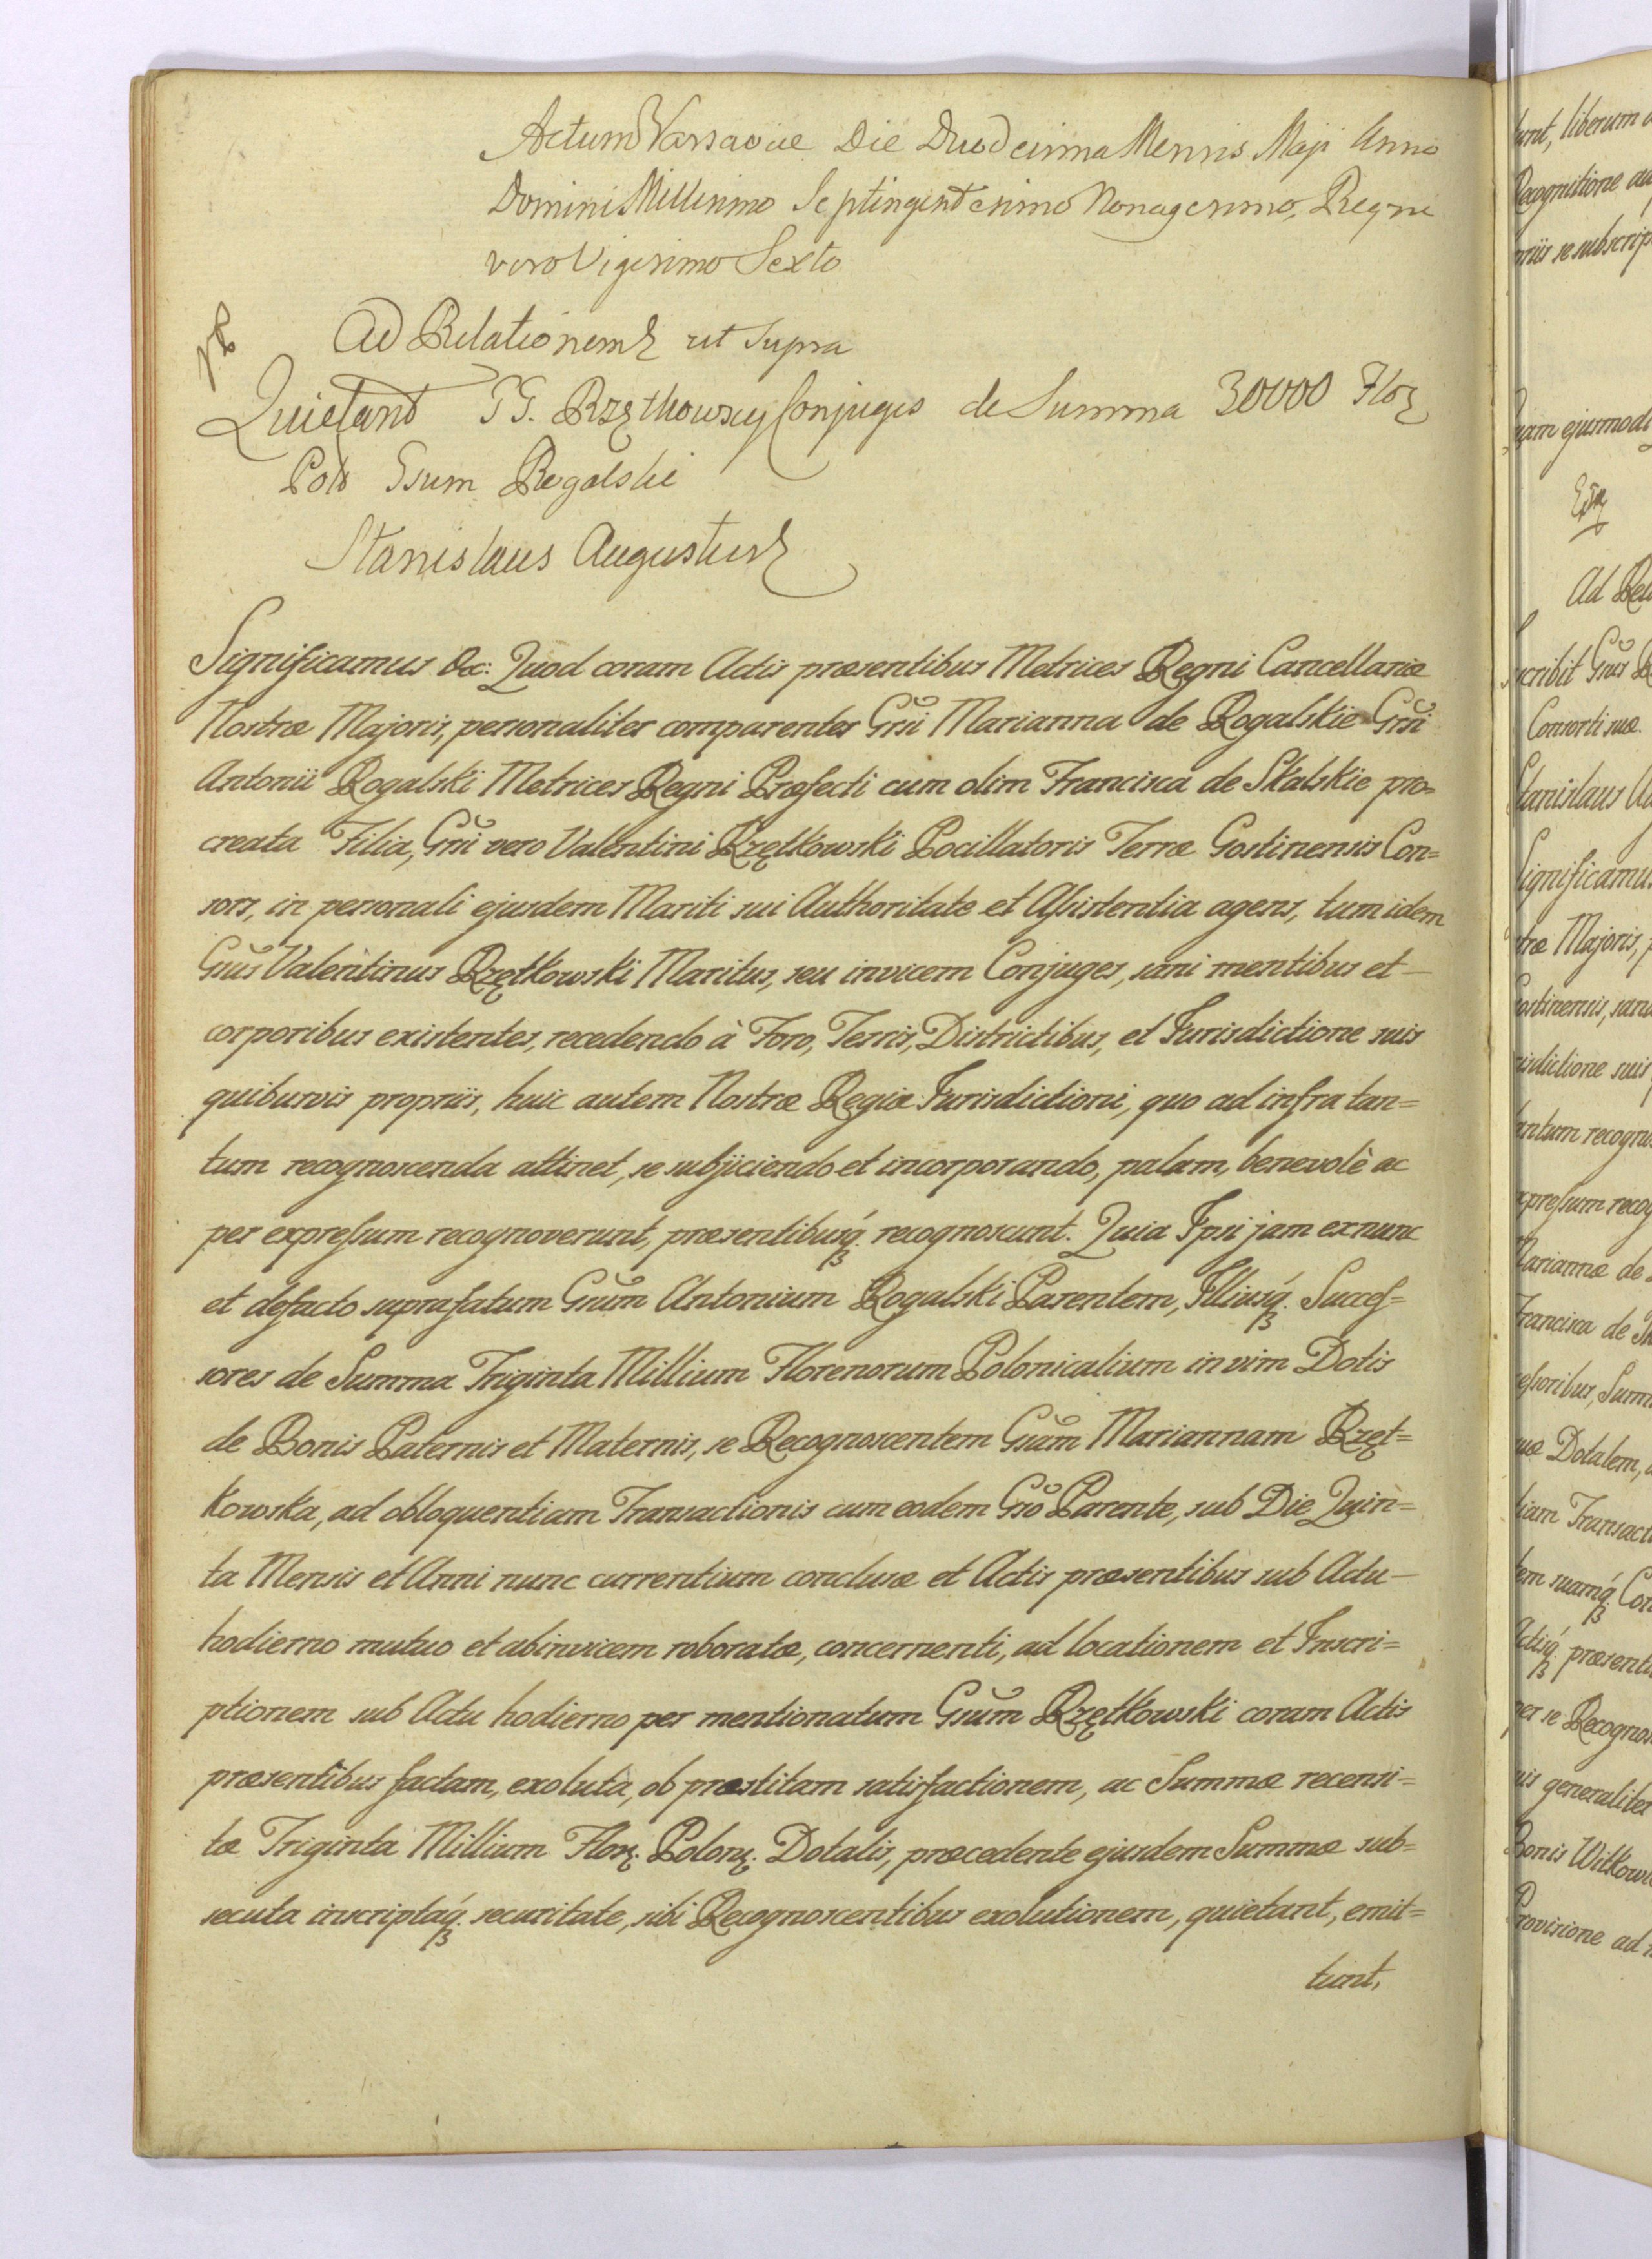 Actum Varsaviæ Die Duodecima Mensis Maji Anno
Domini Millesimo Septingentesimo Nonagesimo, Regni
vero Vigesimo Sexto
Ad Relationem ut supra
Quietant GG. Rzętkowscy Conjuges de Summa 30000 Flor
Pol Gsum Rogalski
Stanislaus Augustus
Significamus &c: Quod coram Actis præsentibus Metrices Regni Cancellariæ
Nostræ Majoris, personaliter comparentes Gsi Marianna de Rogalskie Gsi
Antonii Rogalski Metrices Regni Præfecti cum olim Francisca de Skalskie pro=
creata Filia, Gsi vero Valentini Rzętkowski Pocillatoris Terræ Gostinensis Con=
sors, in personali ejusdem Mariti sui Authoritate et Assistentia agens, tum idem
Gsus Valentinus Rzętkowski Maritus, seu invicem Conjuges, sani mentibus et
corporibus existentes, recedendo à Foro, Terris, Districtibus, et Jurisdictione suis
quibusvis propriis, huic autem Nostræ Regiæ Jurisdictioni, quo ad infra tan=
tum recognoscenda attinet, se subjiciendo et incorporando, palam, benevolè ac
per expressum recognoverunt, præsentibusq́ recognoscunt. Quia Ipsi jam ex nunc
et defacto suprafatum Gsum Antonium Rogalski Parentem, Illiusq́ Succes=
sores de Summa Triginta Millium Florenorum Polonicalium in vim Dotis
de Bonis Paternis et Maternis, se Recognoscentem Gsam Mariannam Rzęt=
kowska, ad obloquentiam Transactionis cum eodem Gso Parente, sub Die Quin=
ta Mensis et Anni nunc currentium conclusæ et Actis præsentibus sub Actu
hodierno mutuo et abinvicem roboratæ, concernenti, ad locationem et Inscri=
ptionem sub Actu hodierno per mentionatum Gsum Rzętkowski coram Actis
præsentibus factam, exoluta, ob præstitam satisfactionem, ac Summæ recensi=
tæ Triginta Millium Flor. Polon. Dotalis, præcedente ejusdem Summæ sub=
secuta inscriptaq́ securitate, sibi Recognoscentibus exolutionem, quietant, emit=
tunt,
unt, liberum
Recognitione
se subscrip
ejusmodi
Ad Rel
Gsus
Consorti suæ.
Stanislaus
Significamus
træ Majoris,
ostinensis,
risdictione suis
antum
xpressum
Mariannæ de
Francisca de
essoribus,
Dotalem,
tiam Transact
tem suamq́
Actisq́ præsenti
per se Recogno
generaliter
Bonis Witkow
Provisione ad